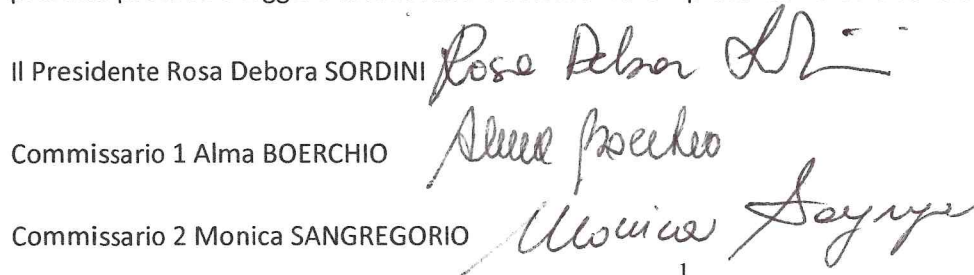 Il Presidente Rosa Debora SORDINI Rosa Debora
Commissario 1 Alma BOERCHIO Alma Boerchio
Commissario 2 Monica SANGREGORIO Monica
1